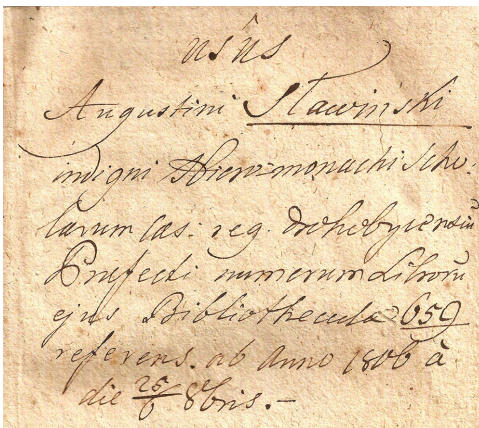 usûs
Augustini Sławinski
indigni Hieromonachi Scho-
larum Cas: reg. Drohobycensiũ
Præfecti numerum Librorũ
ejus Bibliothecula 659
referens. ab Anno 1806 à
die 25/6 8bris.-